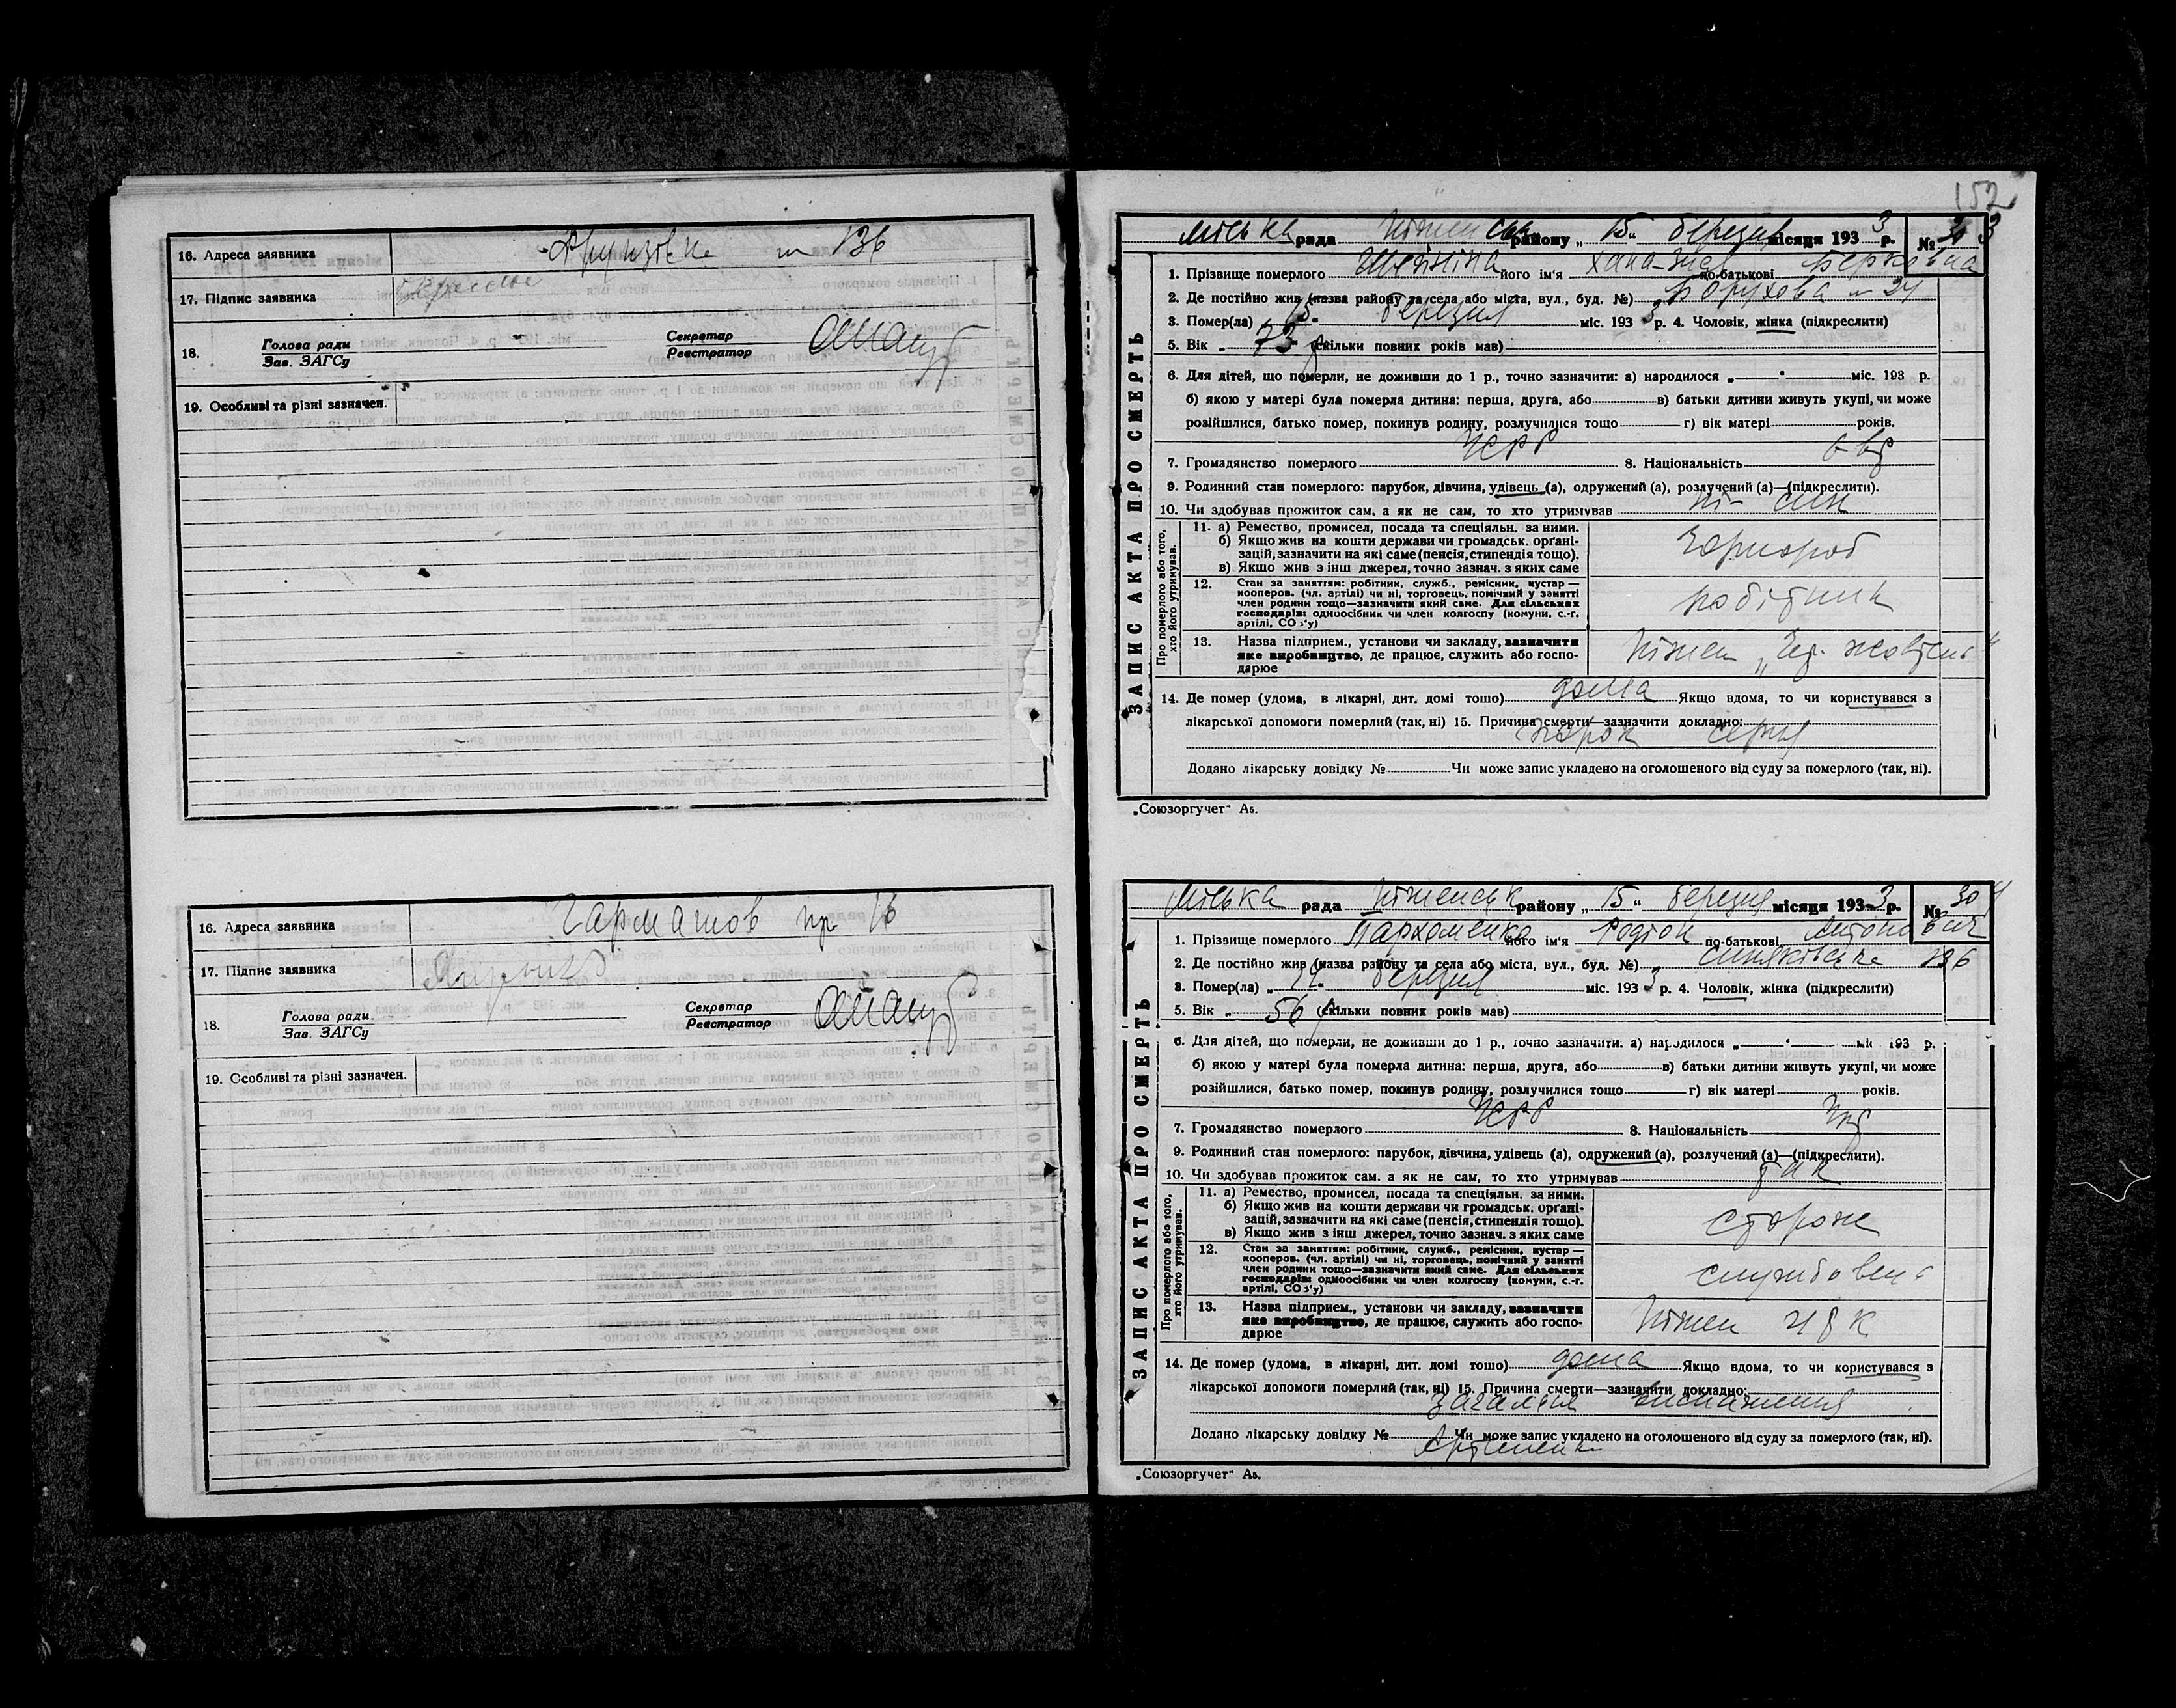 16. Адреса заявника Фрунзівська № 136
17. Підпис заявника
18. Голова ради Зав. ЗАГСу Секретар Реєстратор
19. Особливі та різні зазначен.
16. Адреса заявника Гарматов пр 16
17. Підпис заявника
18. Голова ради Зав. ЗАГСу Секретар Реєстратор
19. Особливі та різні зазначен.
152
ЗАПИС АКТА ПРО СМЕРТЬ
Міська рада Ніженська району „15“ березня місяця 1933 р. № 303
1. Прізвище померлого його ім'я Хана- по-батькові Берковна
2. Де постійно жив (назва району та села або міста, вул., буд. №) № 24
3. Помер(ла) „15“ березня міс. 1933 р. 4. Чоловік, жінка (підкреслити)
5. Вік „73 р (скільки повних років мав)
6. Для дітей, що померли, не доживши до 1 р., точно зазначити: а) народилося „ “ міс. 193 р.
б) якою у матері була померла дитина: перша, друга, або в) батьки дитини живуть укупі, чи може
розійшлися, батько помер, покинув родину, розлучилися тощо г) вік матері років.
7. Громадянство померлого УСРР 8. Національність євр
9. Родинний стан померлого: парубок, дівчина, удівець (а), одружений (а), розлучений (а)—(підкреслити).
10. Чи здобував прожиток сам, а як не сам, то хто утримував ні- син
Про померлого або того, хто його утримував.
11. а) Ремество, промисел, посада та спеціяльн. за ними.
б) Якщо жив на кошти держави чи громадськ. орґані-
зацій, зазначити на які саме (пенсія, стипендія тощо).
в) Якщо жив з інш джерел, точно зазнач. з яких саме
Чорнороб
12. Стан за занятіям: робітник, служб., ремісник, кустар —
кооперов. (чл. артілі) чи ні, торговець, помічний у занятті
член родини тощо—зазначити який саме. Для сільських
господарів: одноосібник чи член колгоспу (комуни, с.-г.
артілі, СОЗ'у)
робітник
13. Назва підприєм., установи чи закладу, зазначити
яке виробництво, де працює, служить або госпо-
дарює
Ніжен „Чер. жовтень“
14. Де помер (удома, в лікарні, дит. домі тощо) дома Якщо вдома, то чи користувався з
лікарської допомоги померлий (так, ні) 15. Причина смерти—зазначити докладно:
Порок серця
Додано лікарську довідку № Чи може запис укладено на оголошеного від суду за померлого (так, ні).
„Союзоргучет“ А5.
ЗАПИС АКТА ПРО СМЕРТЬ
Міська рада Ніженськ району „15“ березня місяця 1933 р. № 304
1. Прізвище померлого Пархоменко його ім'я Родіон по-батькові Антонович
2. Де постійно жив (назва району та села або міста, вул., буд. №) Синяківська 136
3. Помер(ла) березня міс. 1933 р. 4. Чоловік, жінка (підкреслити)
5. Вік „56 р (скільки повних років мав)
6. Для дітей, що померли, не доживши до 1 р., точно зазначити: а) народилося „ “ міс. 193 р.
б) якою у матері була померла дитина: перша, друга, або в) батьки дитини живуть укупі, чи може
розійшлися, батько помер, покинув родину, розлучилися тощо г) вік матері років.
7. Громадянство померлого УСРР 8. Національність Укр
9. Родинний стан померлого: парубок, дівчина, удівець (а), одружений (а), розлучений (а)—(підкреслити).
10. Чи здобував прожиток сам, а як не сам, то хто утримував так
Про померлого або того, хто його утримував.
11. а) Ремество, промисел, посада та спеціяльн. за ними.
б) Якщо жив на кошти держави чи громадськ. орґані-
зацій, зазначити на які саме (пенсія, стипендія тощо).
в) Якщо жив з інш джерел, точно зазнач. з яких саме
сторож
12. Стан за занятіям: робітник, служб., ремісник, кустар —
кооперов. (чл. артілі) чи ні, торговець, помічний у занятті
член родини тощо—зазначити який саме. Для сільських
господарів: одноосібник чи член колгоспу (комуни, с.-г.
артілі, СОЗ'у)
службовець
13. Назва підприєм., установи чи закладу, зазначити
яке виробництво, де працює, служить або госпо-
дарює
Ніжен
14. Де помер (удома, в лікарні, дит. домі тощо) дома Якщо вдома, то чи користувався з
лікарської допомоги померлий (так, ні) 15. Причина смерти—зазначити докладно:
Загальне виснаження
Додано лікарську довідку № Чи може запис укладено на оголошеного від суду за померлого (так, ні).
„Союзоргучет“ А5.